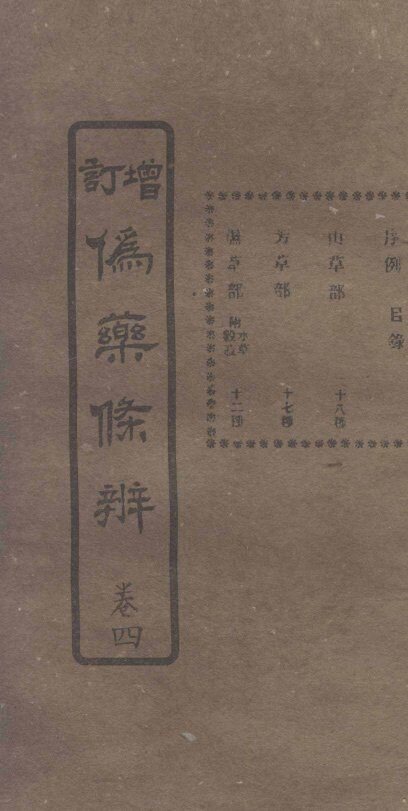 序例 目錄
山草部 十八種
芳草部 十七種
隰草部 附水草穀菽 十二種
增訂
偽藥條辨
卷四